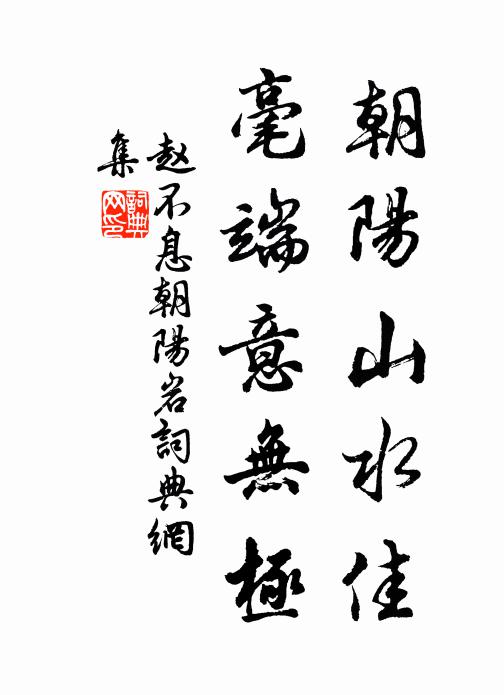 朝陽山水佳
毫端意無極
赵不息朝陽岩詞典網
集
詞典
网印